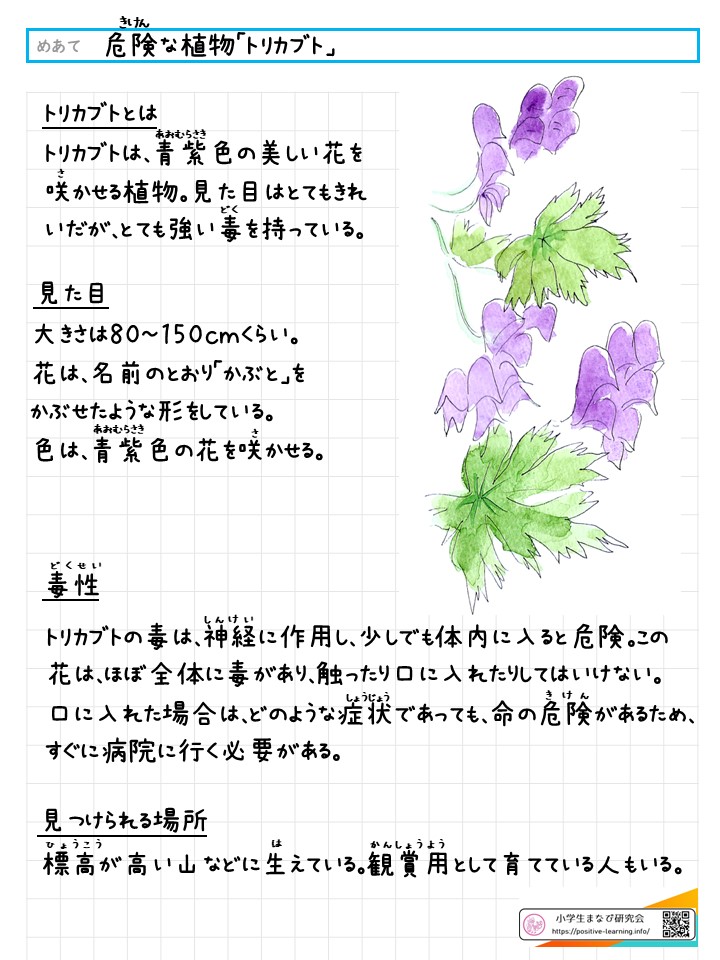 きけん
めあて 危険な植物「トリカブト」
トリカブトとは
あおむらさき
トリカブトは、青紫色の美しい花を
さ
咲かせる植物。見た目はとてもきれ
どく
いだが、とても強い毒を持っている。
見た目
大きさは80～150cmくらい。
花は、名前のとおり「かぶと」を
かぶせたような形をしている。
あおむらさき さ
色は、青紫色の花を咲かせる。
どくせい
毒性
しんけい
トリカブトの毒は、神経に作用し、少しでも体内に入ると危険。この
花は、ほぼ全体に毒があり、触ったり口に入れたりしてはいけない。
しょうじょう きけん
口に入れた場合は、どのような症状であっても、命の危険があるため、
すぐに病院に行く必要がある。
見つけられる場所
ひょうこう は かんしょうよう
標高が高い山などに生えている。観賞用として育てている人もいる。
小学生まなび研究会
https://positive-learning.info/